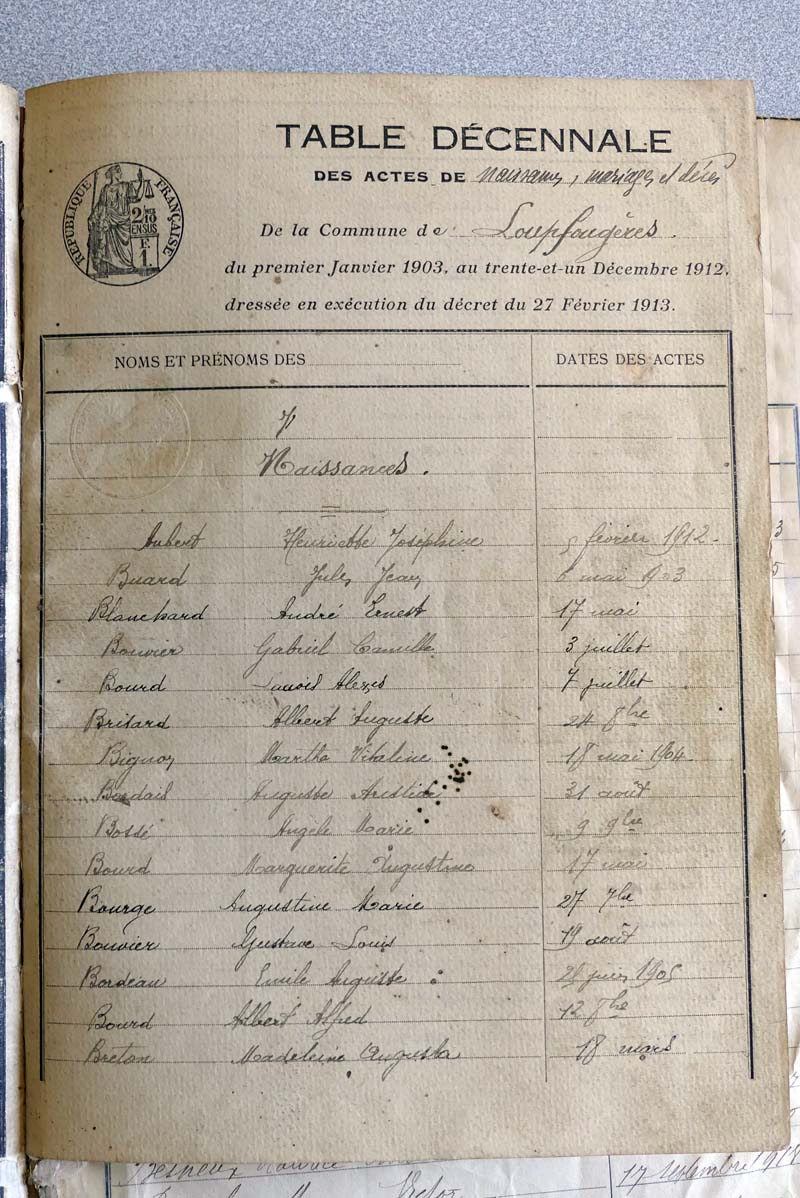 TABLE DÉCENNALE
DES ACTES DE naissances, mariages et décès
RÉPUBLIQUE FRANÇAISE
2/10 EN SUS
F. 1.
De la Commune de Loupfougères.
du premier Janvier 1903, au trente-et-un Décembre 1912,
dressée en exécution du décret du 27 Février 1913.
NOMS ET PRÉNOMS DES DATES DES ACTES
Naissances.
Aubert Henriette Joséphine février 1912
Buard Jules Jean 6 mai 903
Blanchard André Ernest 17 mai
Bouvier Gabriel Camille 3 juillet
Bourd Louis Alexis 7 juillet
Brisard Albert Auguste 24 8bre
Bignon Martha Vitaline 18 mai 1904
Auguste Aristide 31 août
Bossé Angèle Marie 9 9bre
Bourd Marguerite Augustine 17 mai
Bourge Augustine Marie 27 7bre
Bouvier Gustave Louis 19 août
Bordeau Emile Auguste juin 1905
Bourd Albert Alfred 12 8bre
Breton Madeleine Augusta 18 mars
17 septembre
Victor